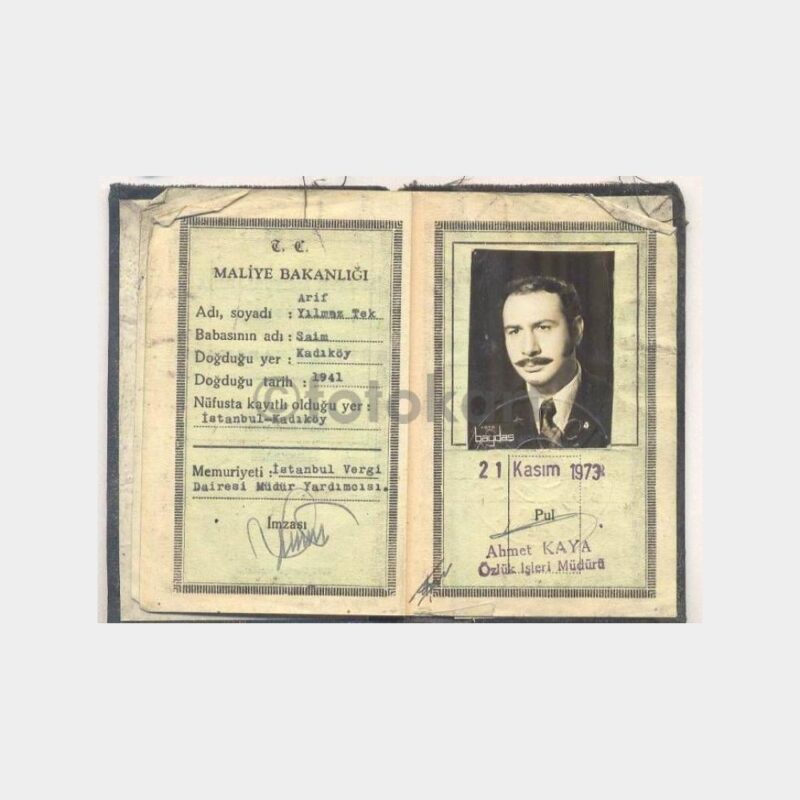 T. C.
MALİYE BAKANLIĞI
Arif
Adı, soyadı : Yılmaz Tek
Babasının adı : Saim
Doğduğu yer : Kadıköy
Doğduğu tarih : 1941
Nüfusta kayıtlı olduğu yer :
İstanbul-Kadıköy
Memuriyeti : İstanbul Vergi
Dairesi Müdür Yardımcısı.
İmzası
baydas
21 Kasım 1973
Pul
Ahmet KAYA
Özlük İşleri Müdürü